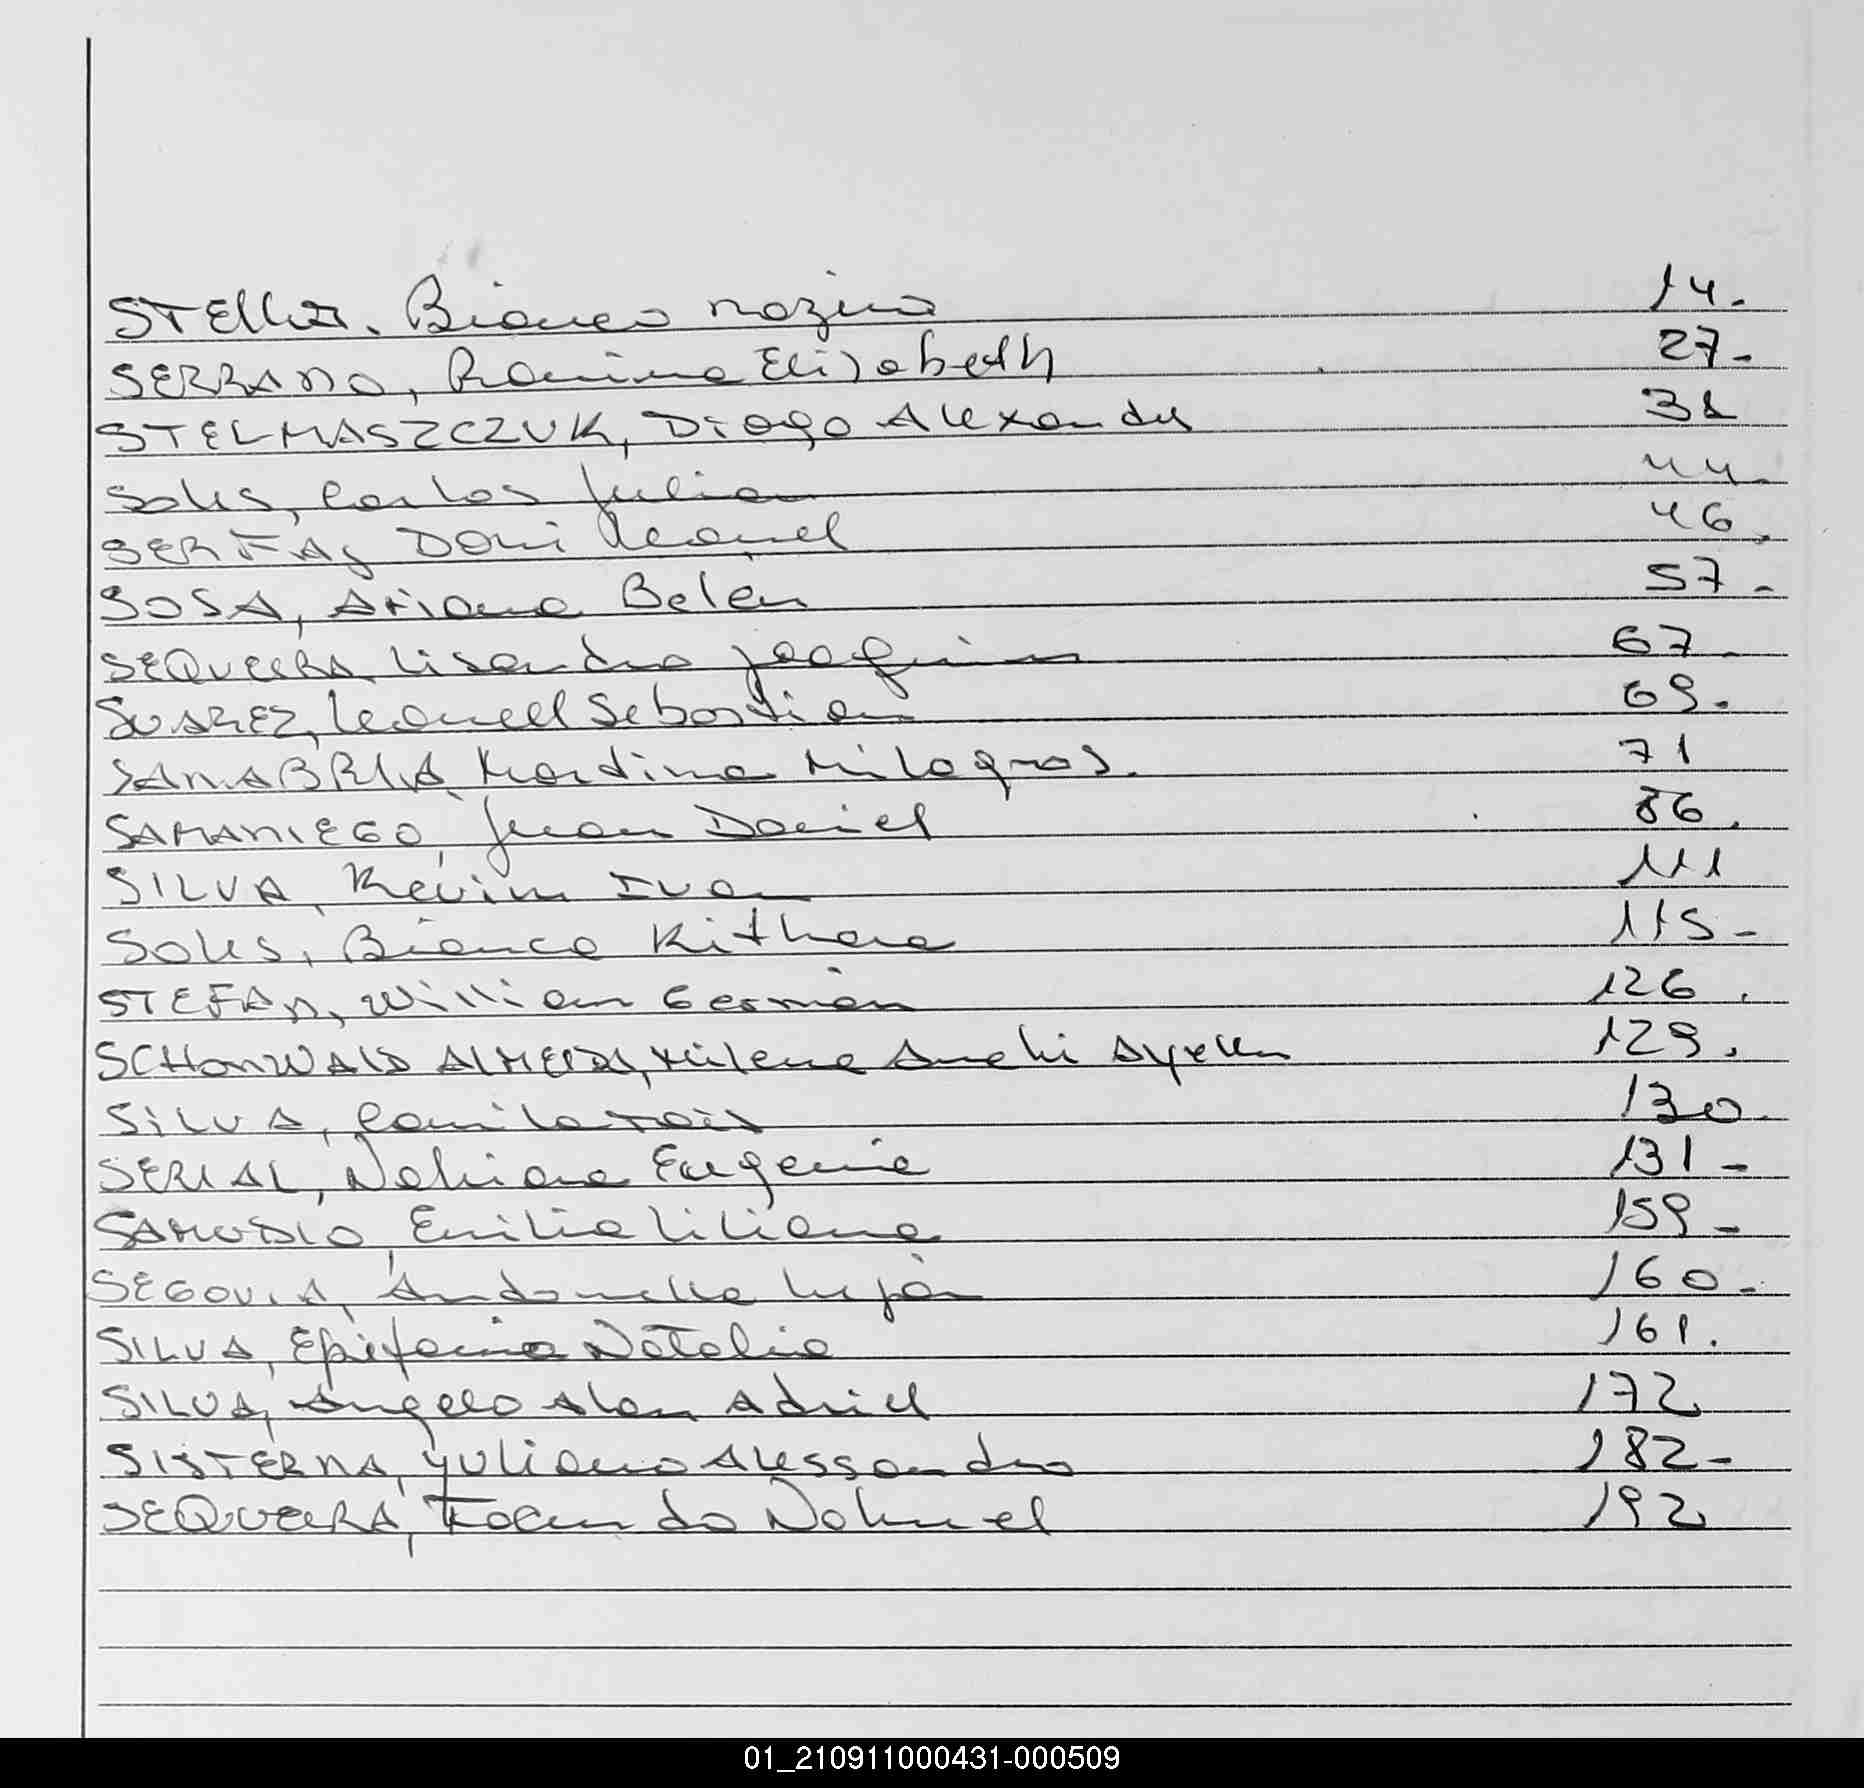 STElla. Bianca nazira 14.
SERRANO, Romina Elizabeth 27-
STELMASZCZUK, Diogo Alexander 38
Solis, Carlos Julian 44.
SERFAS Dani Leonel 46.
SOSA, Ariana Belén 57-
SEQUEIRA Lisandro Joaquin 67-
SUAREZ, Leonell Sebastian 69.
SANABRIA, Martina Milagros. 71
SAMANIEGO, Juan Daniel 86.
SILVA, Kevin Ivan 111
Solis, Bianca Kithara 115-
STEFAN, Willian German 126.
SCHONWALD ALMEIDA, Milena Anahi Ayelen 129.
SILVA, Camila 130.
SERIAL, Nahiara Eugenia 131-
SAMUDIO, Emilia Liliana 159-
SEGOVIA, Antonella Luján 160-
SILVA, Epifania Natalia 161.
SILVA, Angelo Alan Adriel 172
SISTERNA, Yuliano Alessandro 182-
SEQUEIRA, Facundo Nahuel 192
01_210911000431-000509